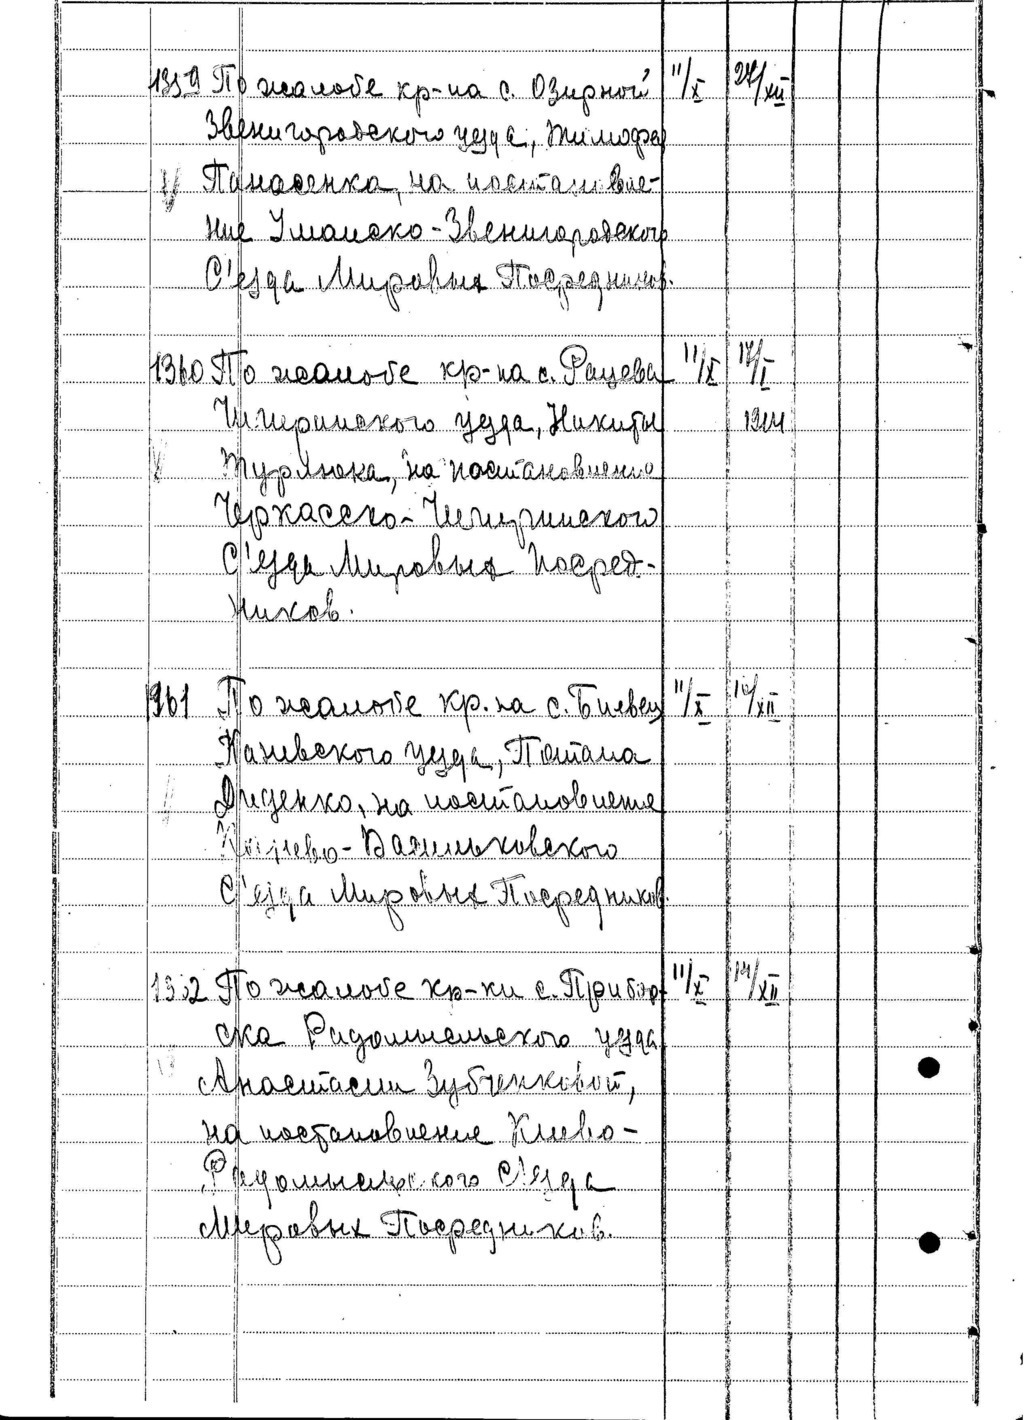 1359 По жалобе кр-на с. Озирной 11/X 24/XII
Звенигородского уезда, Тимофея
Панасенка, на постановле-
ние Уманско-Звенигородского
С'езда Мировых Посредников.
1360 По жалобе кр-на с. Рацева 11/X 17/I
Чигиринского уезда, Никиты 1914
Турлюка, на постановление
Черкасско-Чигиринского
С'езда Мировых Посред-
ников.
1361 По жалобе кр.на с. Биевец 11/X /XII
Каневского уезда, Потапа
Диденко, на постановление
Канево-Васильковского
С'езда Мировых Посредников
1362 По жалобе кр-ки с. Прибор- 11/X 14/XII
ска Радомысльского уезда
Анастасии Зубченковой,
на постановление Киево-
Радомысльского С'езда
Мировых Посредников.